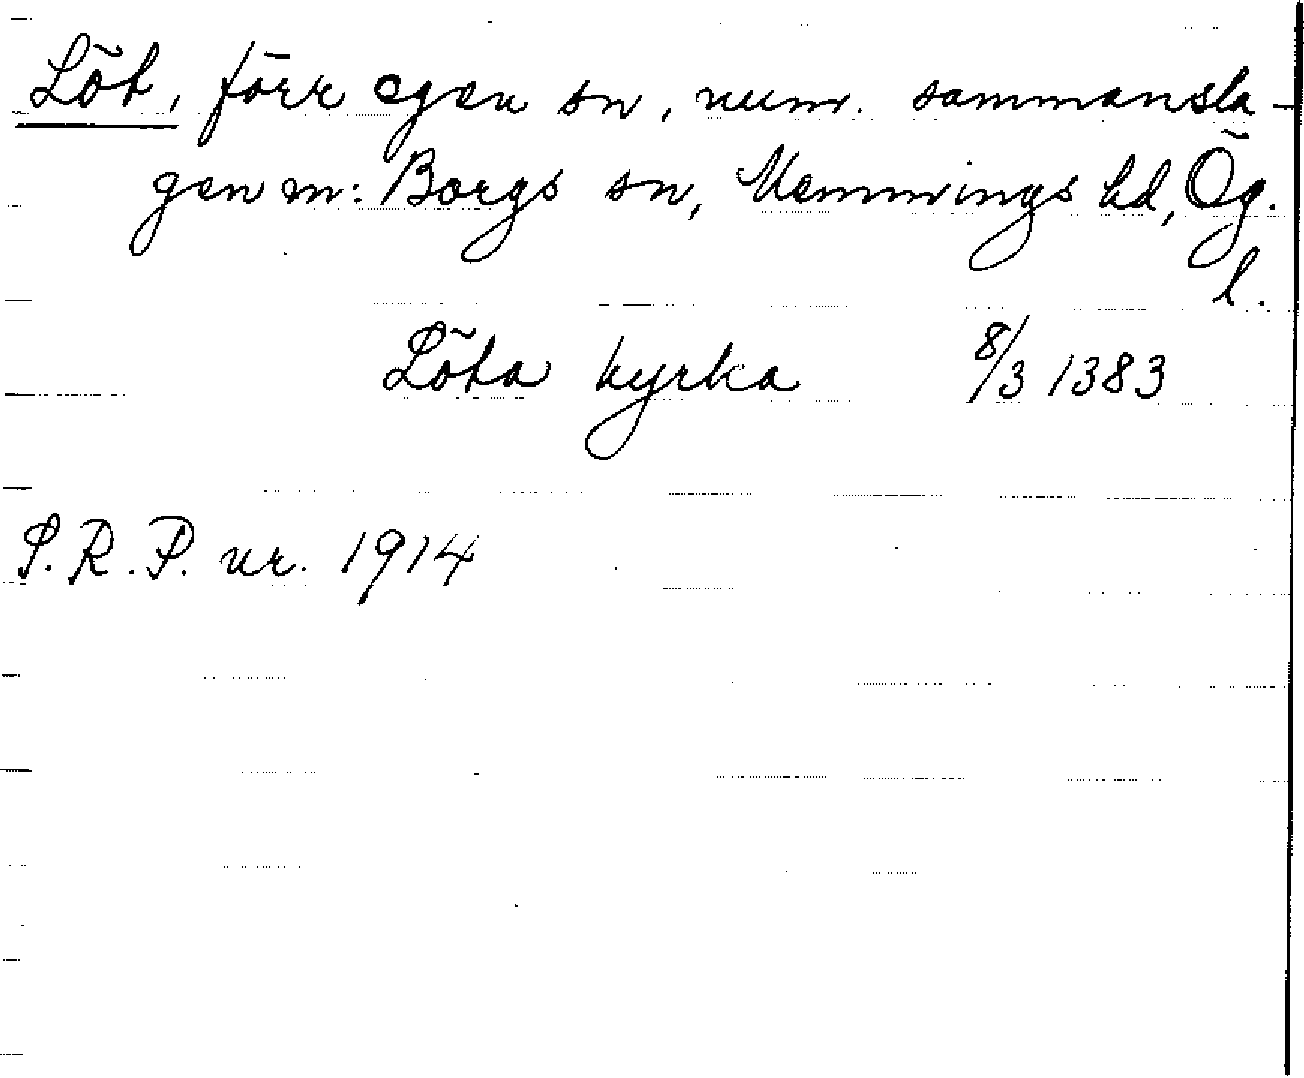 Löt, förr egen sn, num. sammansla-
gen m: Borgs sn, Memmings hd, Ög.
l.
Löta kyrka 8/3 1383
S.R.P. nr. 1914